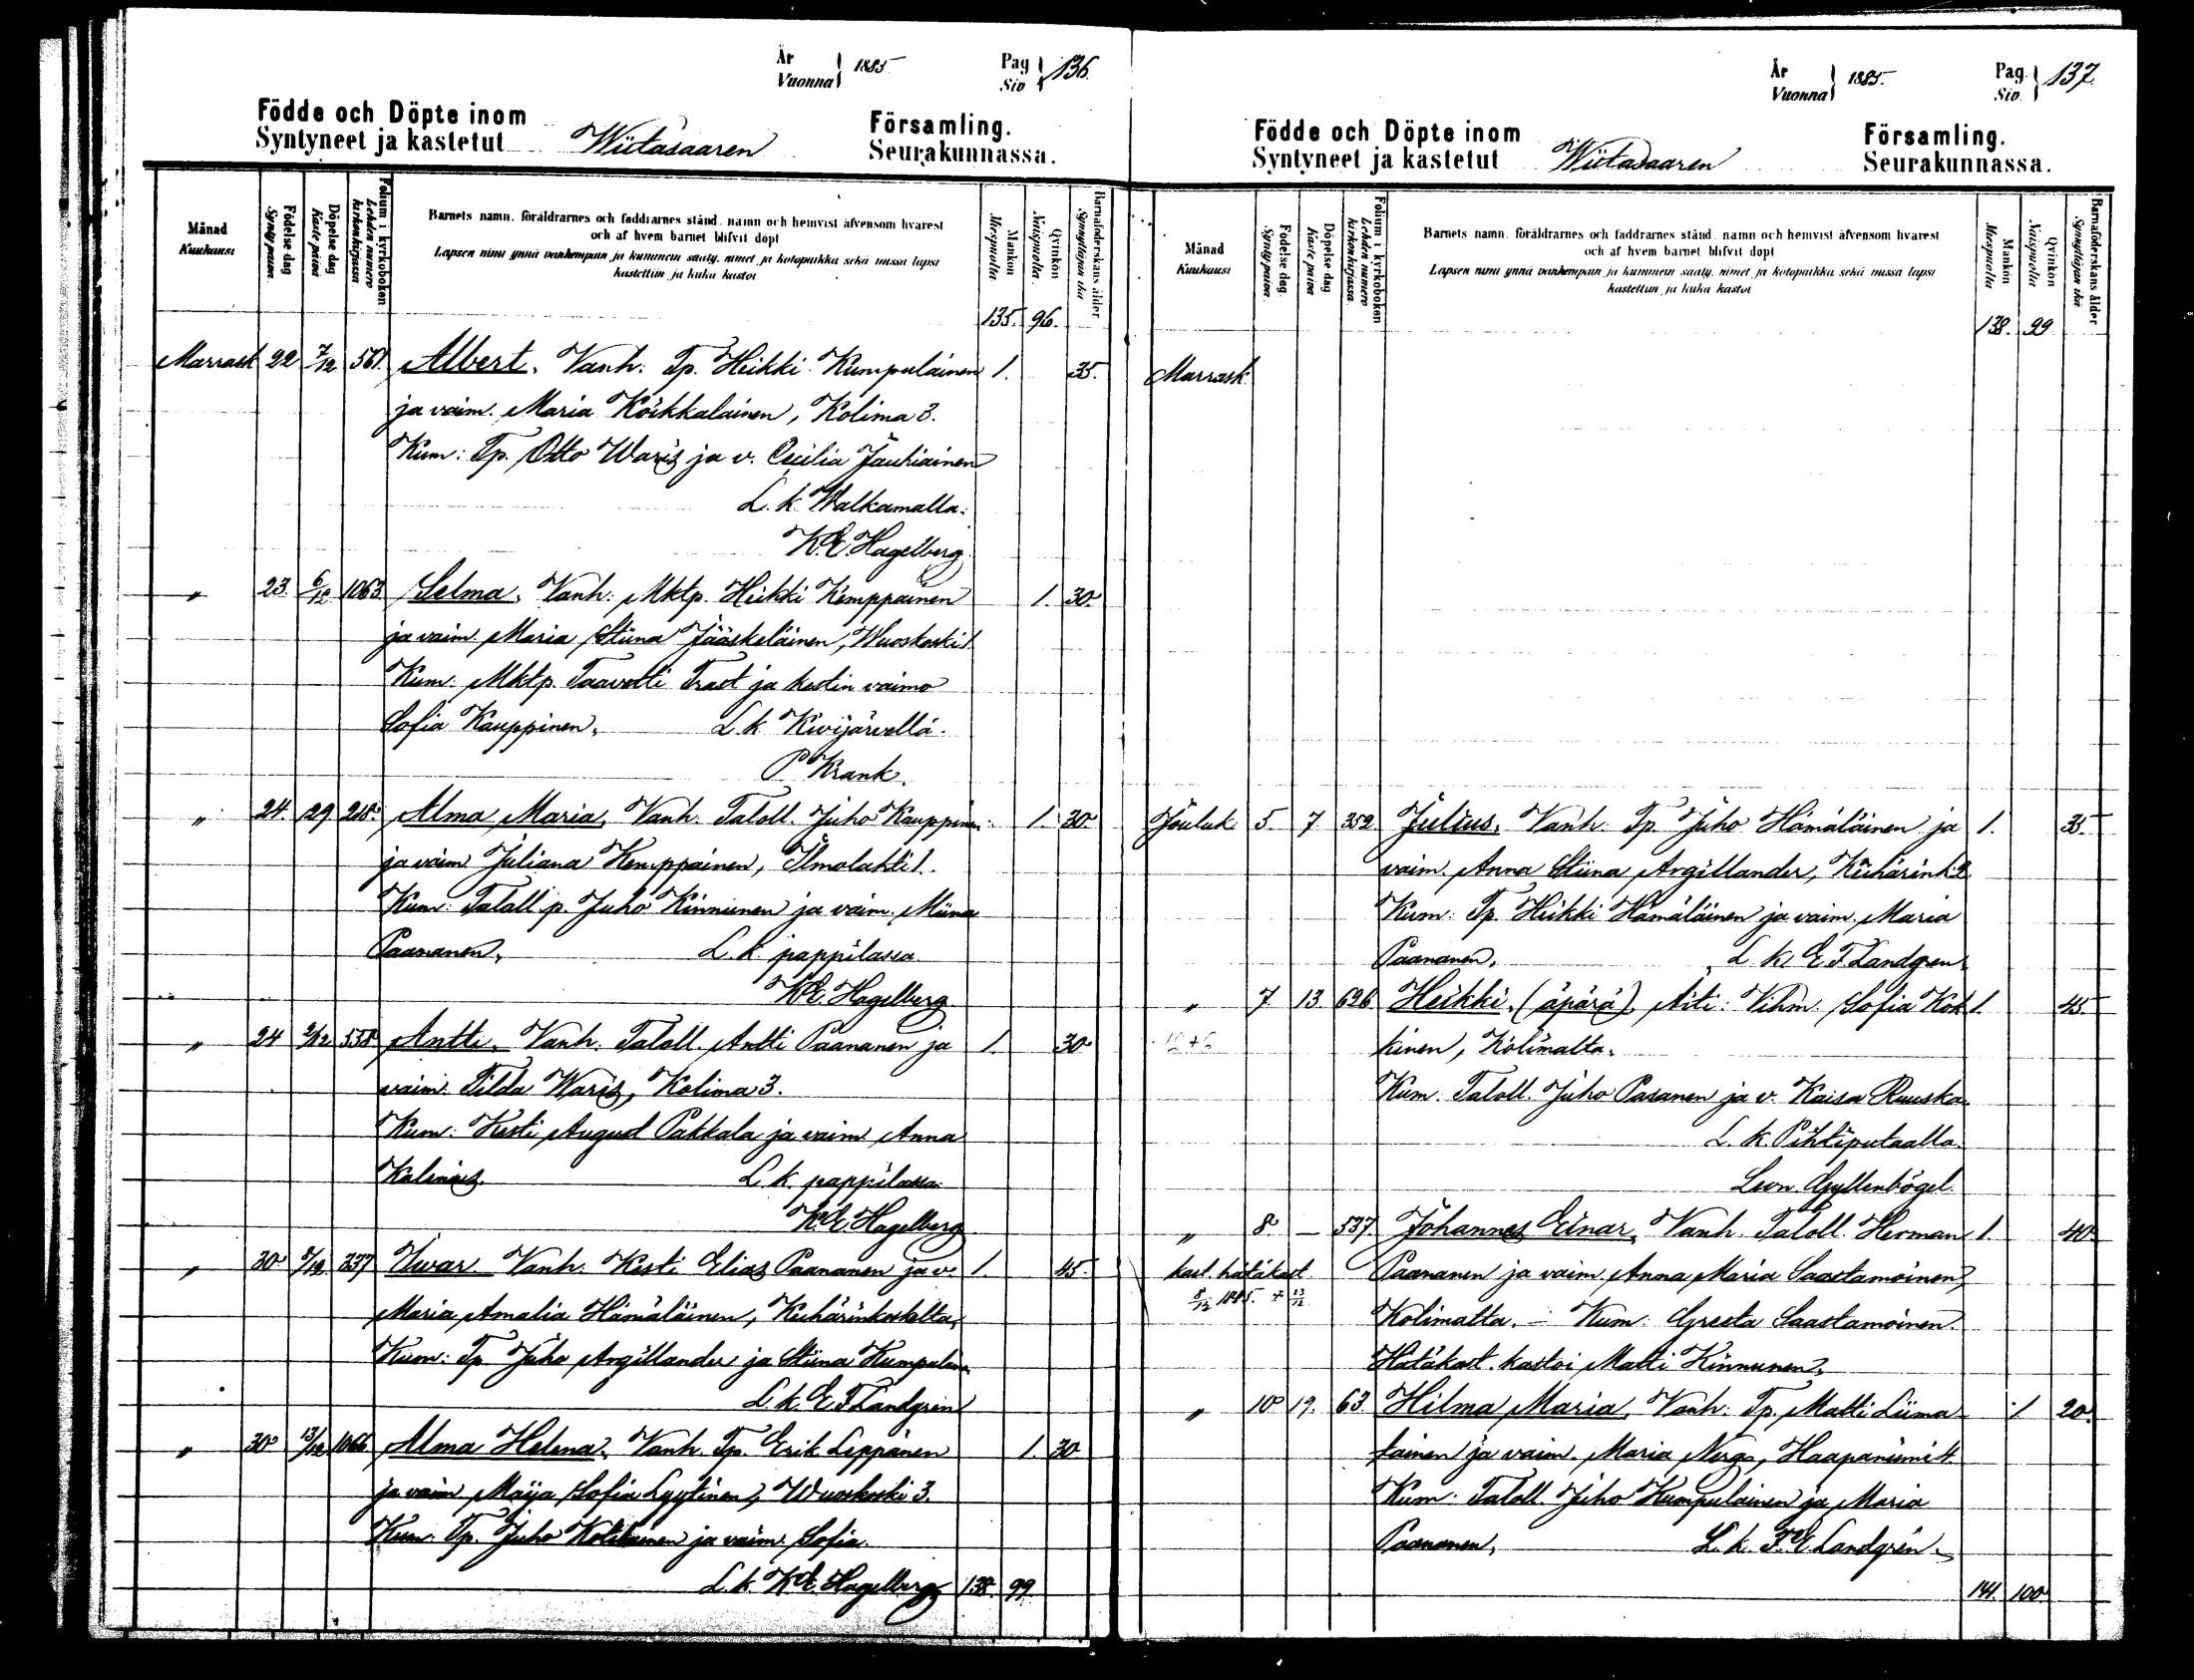 År Vuonna 1885
Pag Siv 136.
Födde och Döpte inom Församling.
Syntyneet ja kastetut Wiitasaaren Seurakunnassa.
Månad Kuukausi
Födelse dag Syntypäivä
Döpelse dag Kastepäivä
Folium i kyrkoboken Lehden numero kirkonkirjassa
Barnets namn, föräldrarnes och faddrarnes stånd, namn och hemvist äfvensom hvarest
och af hvem barnet blifvit döpt
Lapsen nimi ynnä vanhempain ja kummein sääty, nimet ja kotopaikka sekä missä lapsi
kastettiin ja kuka kastoi
Mankön Miespuolia
Qvinkön Naispuolia
Barnaföderskans ålder Synnyttäjän ikä
135. 96.
Marrask 22 7/12 561. Albert. Vanh. Tp. Heikki Kumpulainen 1. 35.
ja vaim. Maria Köikkalainen, Kolima 3.
Kum: Tp. Otto Waris ja v. Cecilia Jauhiainen
L. k. Walkamalla.
K.E. Hagelberg
" 23. 6/12 1063 Selma. Vanh: Mktp. Heikki Kemppainen 1. 30.
ja vaim. Maria Stiina Jääskeläinen, Wuoskoski 1.
Kum: Mktp. Taavetti Trast ja kestin vaimo
Sofia Kauppinen. L. k. Kivijärvellä.
P. Krank.
" 24. 29 218. Alma Maria, Vanh. Taloll. Juho Kauppinen 1. 30.
ja vaim Juliana Kemppainen, Ilmolahti 1.
Kum: Taloll. p. Juho Kinnunen ja vaim. Miina
Paananen. L. k. pappilassa
K.E. Hagelberg
" 24 2/12 538 Antti. Vanh: Taloll. Antti Paananen ja 1. 30
vaim. Tilda Waris, Kolima 3.
Kum: Kesti August Pakkala ja vaim Anna
L. k. pappilassa.
K.E. Hagelberg
" 30 337 Iivar Vanh. Kesti Elias Paananen ja v. 1. 45.
Maria Amalia Hämäläinen, Keihärinkoskelta,
Kum: Tp Juho Argillander ja Stiina Kumpulainen
L. k. E F Landgren
" 30 13/12 1066 Alma Helena. Vanh. Tp. Erik Leppänen 1. 30
ja vaim Maija Sofia Lyytinen, Wuoskoski 3.
Kum. Tp. Juho Kotilainen ja vaim. Sofia.
L. k. K.E. Hagelberg 138. 99
År Vuonna 1885.
Pag. Siv. 137.
Födde och Döpte inom Församling.
Syntyneet ja kastetut Wiitasaaren Seurakunnassa.
Månad Kuukausi
Födelse dag Syntypäivä
Döpelse dag Kastepäivä
Folium i kyrkoboken Lehden numero kirkonkirjassa
Barnets namn, föräldrarnes och faddrarnes stånd, namn och hemvist äfvensom hvarest
och af hvem barnet blifvit döpt
Lapsen nimi ynnä vanhempain ja kummein sääty, nimet ja kotopaikka sekä missä lapsi
kastettiin ja kuka kastoi
Mankön Miespuolia
Qvinkön Naispuolia
Barnaföderskans ålder Synnyttäjän ikä
138. 99
Marrask.
Jouluk. 5. 7. 352 Julius. Vanh. Tp. Juho Hämäläinen ja 1. 35.
vaim. Anna Stiina Argillander, Keihärink 2
Kum: Tp. Heikki Hämäläinen ja vaim. Maria
Paananen. L. k. E. F Landgren.
" 7 13. 626 Heikki, (äpärä), Äiti: Vihm. Sofia Kok 1. 45.
kinen, Kolimalta.
Kum. Taloll. Juho Pasanen ja v. Kaisa Ruuska
L. k. Pihtiputaalla.
Leon. Gyllenbögel
" 8. — 537. Johannes Einar, Vanh. Taloll. Herman 1. 40
kast. hätäkast Paananen ja vaim. Anna Maria Saastamoinen,
8/12 1885. + 13/12 Kolimalta. - Kum: Greeta Saastamoinen.
Hätäkast. kastoi Matti Kinnunen.
" 10 19. 63. Hilma Maria, Vanh: Tp. Matti Liima 1 20.
tainen ja vaim. Maria Nurgo, Haapaniemi 4
Kum: Taloll. Juho Kumpulainen ja Maria
Paananen. L. k. F. E. Landgrén.
141. 100